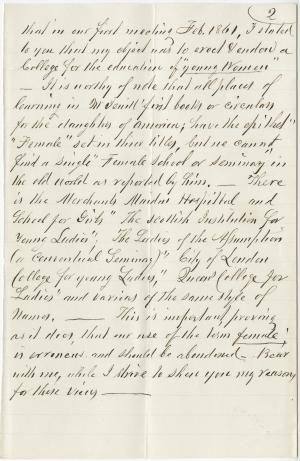 2
that in our first meeting Feb. 1861, I stated
to you that my object was to erect & endow a
College for the education of "young Women"
— It is worthy of note that all places of
learning in Mr Jewitt' first books or circulars
for the daughters of America, have the epithet
"Female" set in their titles, but we cannot
find a single "Female School or Seminary" in
the old world as reported by him. — There
is the Merchants Maiden Hospital and
School for Girls" The Scottish Institution for
Young Ladies", The Ladies of the Assumption
(a Conventual Seminary)" City of London
College for young Ladies," Queens College for
Ladies" and various of the same style of
Names. — This is important, proving
as it does, that our use of the term female,
is erroneous and should be abandoned — Bear
with me, while I strive to shew you my reasons
for these views —